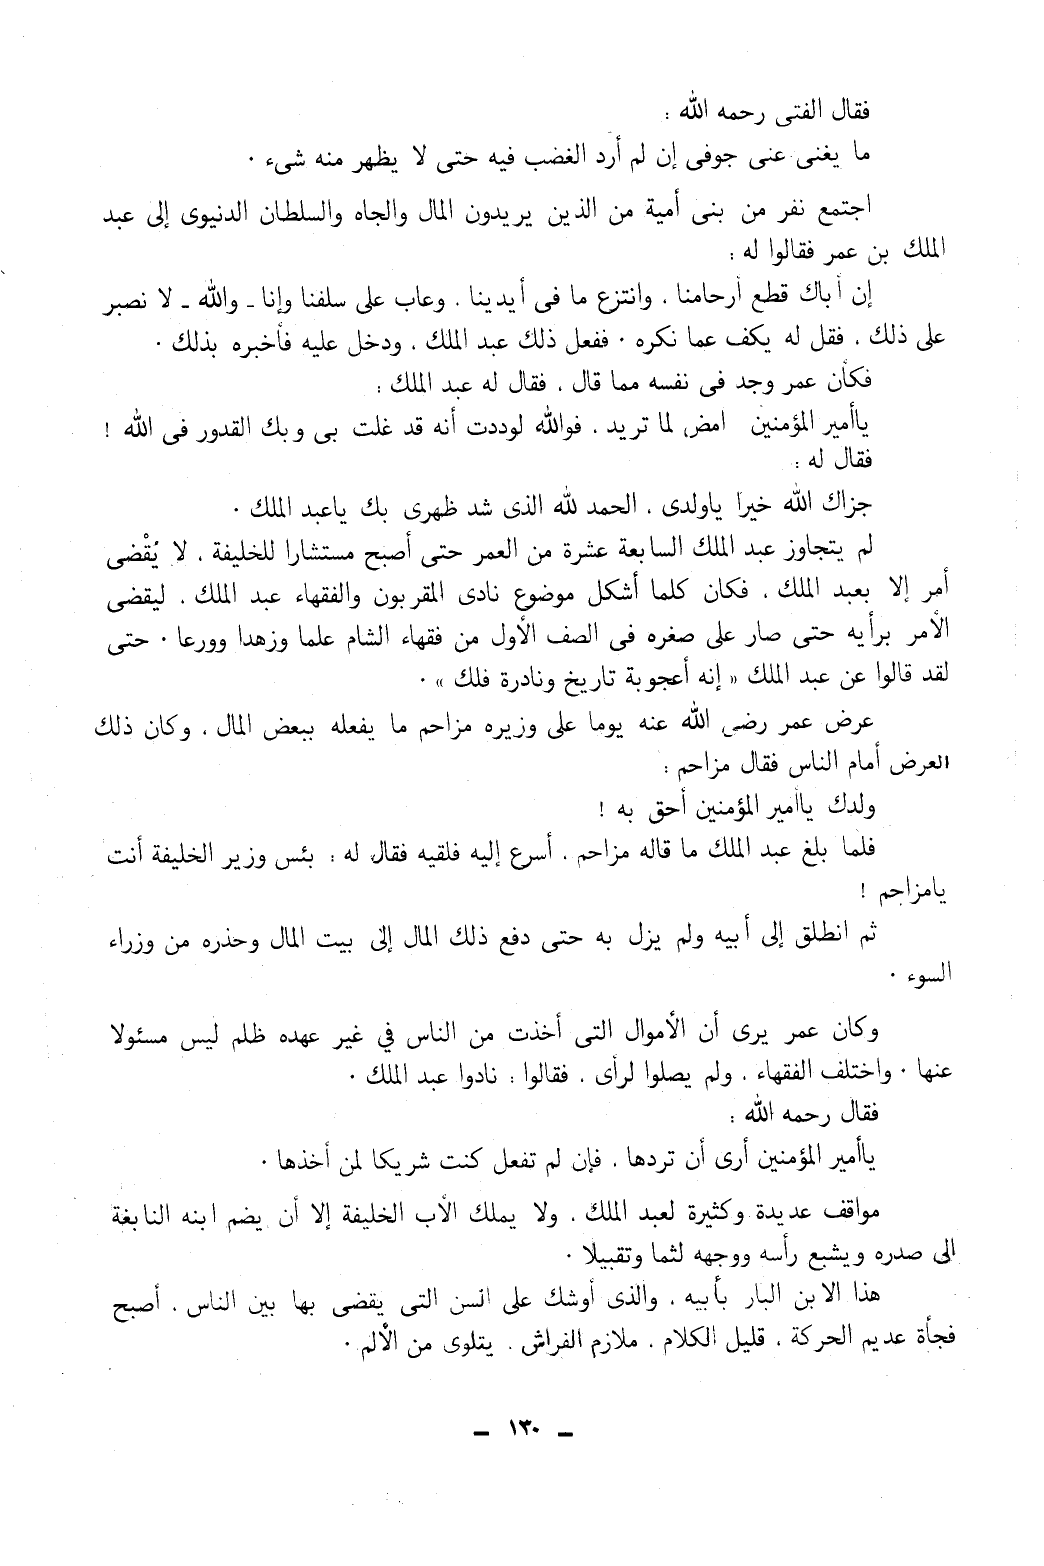 فقال الفتى رحمه الله :
ما يغنى عنى جوفى إن لم أرد الغضب فيه حتى لا يظهر منه شىء .
اجتمع نفر من بنى أمية من الذين يريدون المال والجاه والسلطان الدنيوى إلى عبد
الملك بن عمر فقالوا له :
إن أباك قطع أرحامنا ، وانتزع ما فى أيدينا ، وعاب على سلفنا وإنا ـ والله ـ لا نصبر
على ذلك ، فقل له يكف عما نكره . ففعل ذلك عبد الملك ، ودخل عليه فأخبره بذلك .
فكأن عمر وجد فى نفسه مما قال ، فقال له عبد الملك :
ياأمير المؤمنين امض لما تريد ، فوالله لوددت أنه قد غلت بى وبك القدور فى الله !
فقال له :
جزاك الله خيرا ياولدى ، الحمد لله الذى شد ظهرى بك ياعبد الملك .
لم يتجاوز عبد الملك السابعة عشرة من العمر حتى أصبح مستشارا للخليفة ، لا يُقْضى
أمر إلا بعبد الملك ، فكان كلما أشكل موضوع نادى المقربون والفقهاء عبد الملك ، ليقضى
الأمر برأيه حتى صار على صغره فى الصف الأول من فقهاء الشام علما وزهدا وورعا . حتى
لقد قالوا عن عبد الملك « إنه أعجوبة تاريخ ونادرة فلك » .
عرض عمر رضى الله عنه يوما على وزيره مزاحم ما يفعله ببعض المال ، وكان ذلك
العرض أمام الناس فقال مزاحم :
ولدك ياأمير المؤمنين أحق به !
فلما بلغ عبد الملك ما قاله مزاحم ، أسرع إليه فلقيه فقال له : بئس وزير الخليفة أنت
يامزاحم !
ثم انطلق إلى أبيه ولم يزل به حتى دفع ذلك المال إلى بيت المال وحذره من وزراء
السوء .
وكان عمر يرى أن الأموال التى أخذت من الناس في غير عهده ظلم ليس مسئولا
عنها . واختلف الفقهاء ، ولم يصلوا لرأى ، فقالوا : نادوا عبد الملك .
فقال رحمه الله :
ياأمير المؤمنين أرى أن تردها ، فإن لم تفعل كنت شريكا لمن أخذها .
مواقف عديدة وكثيرة لعبد الملك ، ولا يملك الأب الخليفة إلا أن يضم ابنه النابغة
الى صدره ويشبع رأسه ووجهه لثما وتقبيلا .
هذا الابن البار بأبيه ، والذى أوشك على السن التى يقضى بها بين الناس ، أصبح
فجأة عديم الحركة ، قليل الكلام ، ملازم الفراش ، يتلوى من الألم .
ـ ١٣٠ ـ